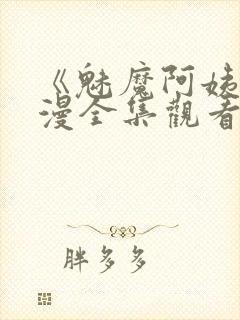 《魅魔阿姊
漫全集觀看
胖多多